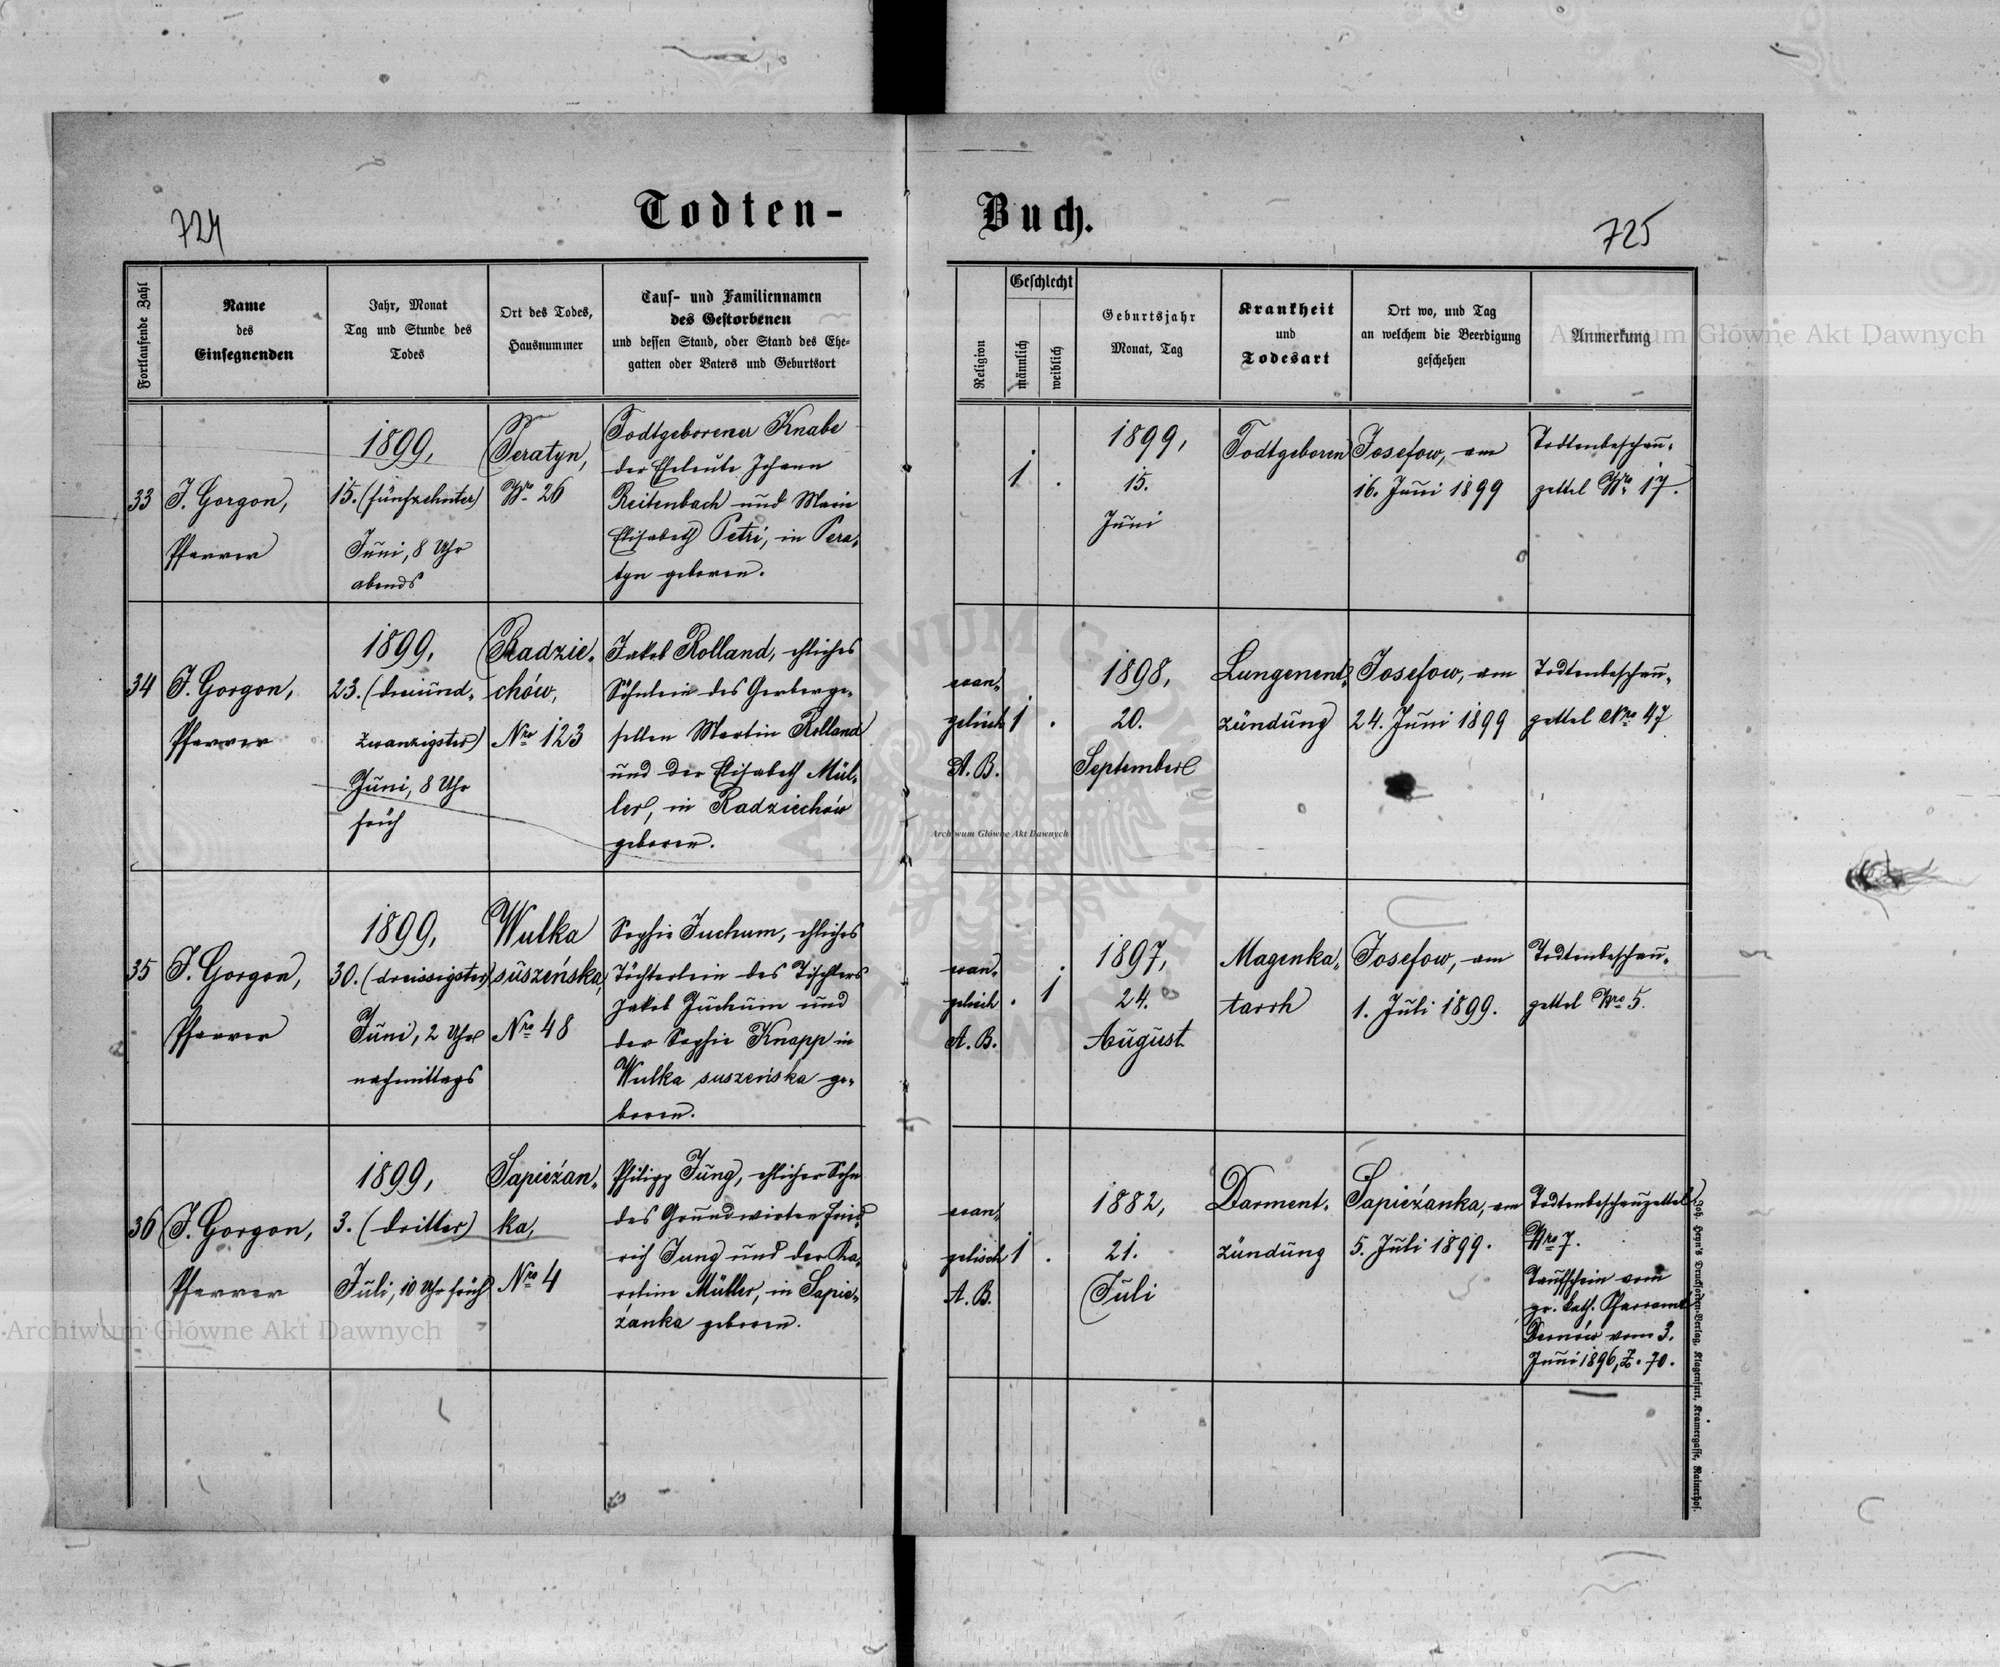 724
Todten-
Buch.
725
Fortlaufende Zahl
Name
des
Einsegnenden
Jahr, Monat
Tag und Stunde des
Todes
Ort des Todes,
Hausnummer
Tauf- und Familiennamen
des Gestorbenen
und dessen Stand, oder Stand des Ehe-
gatten oder Vaters und Geburtsort
Religion
Geschlecht
männlich
weiblich
Geburtsjahr
Monat, Tag
Krankheit
und
Todesart
Ort wo, und Tag
an welchem die Beerdigung
geschehen
Anmerkung
33
J. Gorgon,
Pfarrer
1899,
15. (fünfzehnter)
Juni, 8 Uhr
abends
Peratyn,
Nro 26
Todtgeborener Knabe
der Eheleute Johann
Reitenbach und Marie
Elisabeth Petri, in Pera-
tyn geboren.
1
.
1899,
15.
Juni
Todtgeboren
Josefow, am
16. Juni 1899
Todtenbeschau-
zettel Nro 17.
34
J. Gorgon,
Pfarrer
1899,
23. (dreiund-
zwanzigster)
Juni, 8 Uhr
früh
Radzie-
chów,
Nro 123
Jakob Rolland, ehliches
Söhnlein des Gerberge-
sellen Martin Rolland
und der Elisabeth Mül-
ler, in Radziechów
geboren.
evan-
gelisch
A. B.
1
.
1898,
20.
September
Lungenent-
zündung
Josefow, am
24. Juni 1899
Todtenbeschau-
zettel Nro 47
35
J. Gorgon,
Pfarrer
1899,
30. (dreissigster)
Juni, 2 Uhr
nachmittags
Wulka
suszeńska,
Nro 48
Sophie Juchum, ehliches
Töchterlein des Tischlers
Jakob Juchum und
der Sophie Knapp in
Wulka suszeńska ge-
boren.
evan-
gelisch
A. B.
.
1
1897,
24.
August
Magenka-
tarrh
Josefow, am
1. Juli 1899.
Todtenbeschau-
zettel Nro 5.
36
J. Gorgon,
Pfarrer
1899,
3. (dritter)
Juli, 10 Uhr früh
Sapieżan-
ka,
Nro 4
Philipp Jung, ehlicher Sohn
des Grundwirten Fried-
rich Jung und der Ka-
rolina Müller, in Sapie-
żanka geboren.
evan-
gelisch
A. B.
1
.
1882,
21.
Juli
Darment-
zündung
Sapieżanka, am
5. Juli 1899.
Todtenbeschauzettel
Nro 7.
Taufschein vom
gr. kath. Pfarramt
Dernów vom 3.
Juni 1896, Z. 70.
Joh. Heyn's Drucksorten-Verlag, Klagenfurt, Kramergasse, Rainerhof.
Archiwum Główne Akt Dawnych
Archiwum Główne Akt Dawnych
Archiwum Główne Akt Dawnych